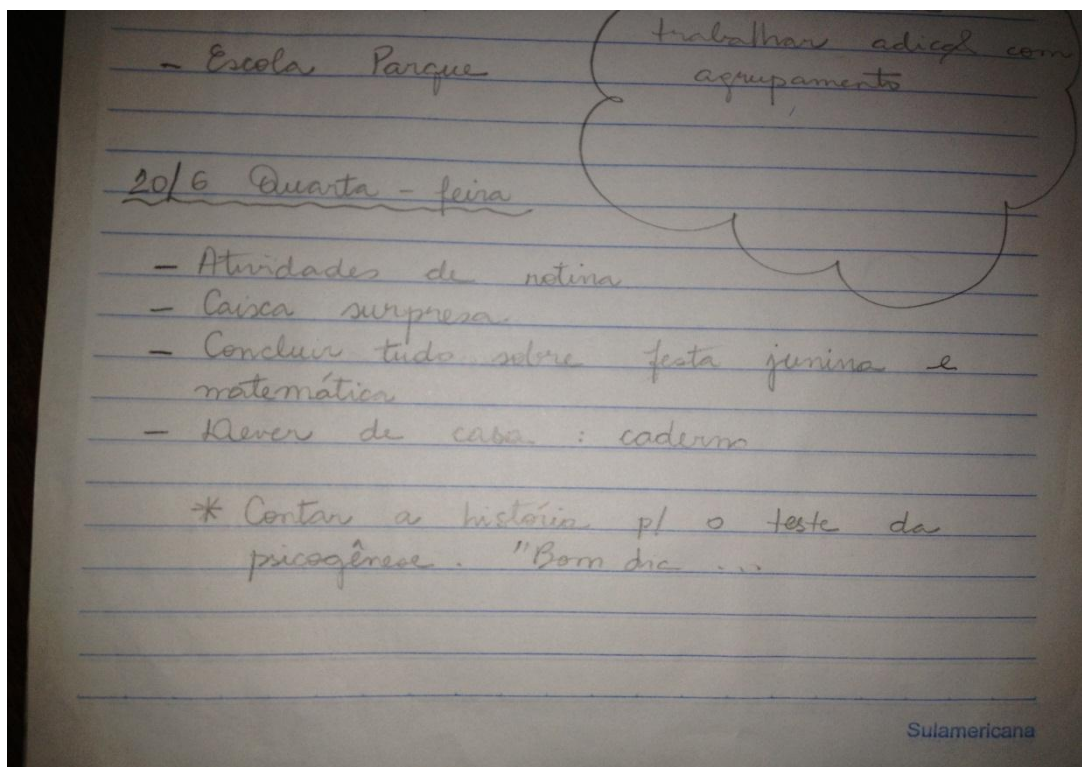 - Escola Parque
trabalhar adição com
agrupamento
20/6 Quarta - feira
- Atividades de rotina
- Caixa surpresa
- Concluir tudo sobre festa junina e
matemática
- Dever de casa : caderno
* Contar a história p/ o teste da
psicogênese. "Bom dia ...
Sulamericana